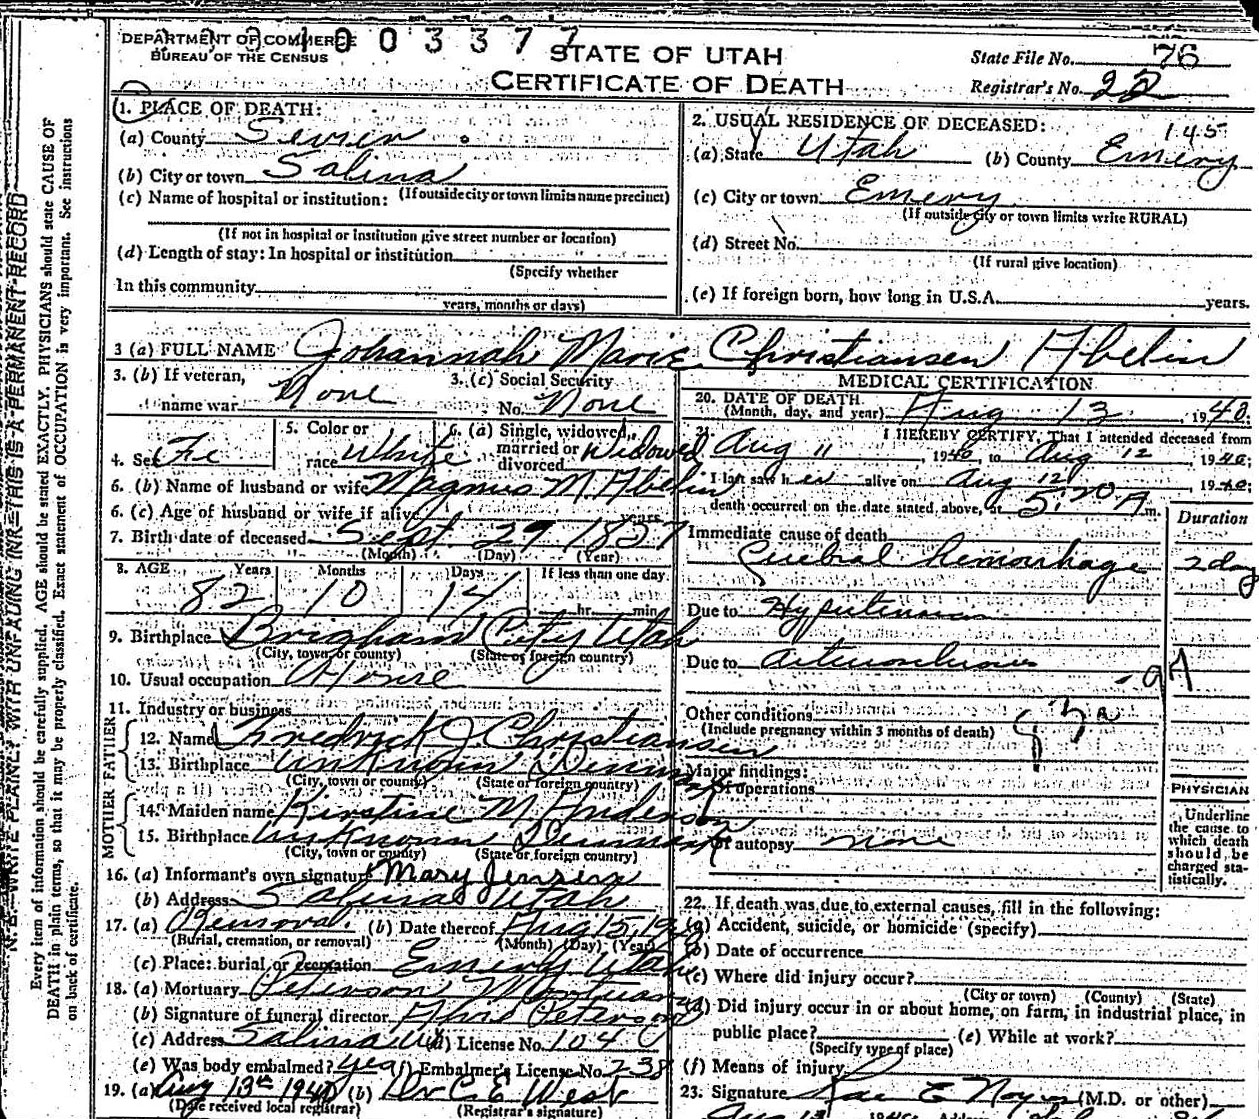 DEPARTMENT OF COMMERCE
BUREAU OF THE CENSUS
1003377
STATE OF UTAH
CERTIFICATE OF DEATH
State File No. 76
Registrar's No. 22
1. PLACE OF DEATH:
(a) County Sevier
(b) City or town Salina
(If outside city or town limits name precinct)
(c) Name of hospital or institution:
(If not in hospital or institution give street number or location)
(d) Length of stay: In hospital or institution
(Specify whether
In this community
years, months or days)
2. USUAL RESIDENCE OF DECEASED:
145
(a) State Utah (b) County Emery
(c) City or town Emery
(If outside city or town limits write RURAL)
(d) Street No.
(If rural give location)
(e) If foreign born, how long in U.S.A. years.
3 (a) FULL NAME Johannah Marie Christiansen Abelin
3. (b) If veteran,
name war None
3. (c) Social Security
No. None
4. Sex Fe
5. Color or
race White
6. (a) Single, widowed,
married or
divorced Widowed
6. (b) Name of husband or wife Magnus M Abelin
6. (c) Age of husband or wife if alive years
7. Birth date of deceased Sept. 29 1857
(Month) (Day) (Year)
8. AGE Years Months Days If less than one day
82 10 14 hr. min.
9. Birthplace Brigham City Utah
(City, town, or county) (State or foreign country)
10. Usual occupation House
11. Industry or business
FATHER
12. Name Fredrick J. Christiansen
13. Birthplace Unknown Denmark
(City, town or county) (State or foreign country)
MOTHER
14. Maiden name Kirstine M Anderson
15. Birthplace Unknown Denmark
(City, town or county) (State or foreign country)
16. (a) Informant's own signature Mary Jensen
(b) Address Salina Utah
17. (a) Removal. (b) Date thereof Aug 15, 1940
(Burial, cremation, or removal) (Month) (Day) (Year)
(c) Place: burial or cremation Emery Utah
18. (a) Mortuary Peterson Mortuary
(b) Signature of funeral director Peterson
(c) Address Salina Ut (d) License No. 104
(e) Was body embalmed? yes (f) Embalmer's License No. 238
19. (a) Aug 13th 1940 (b) Dr C. E West
(Date received local registrar) (Registrar's signature)
MEDICAL CERTIFICATION
20. DATE OF DEATH
(Month, day, and year) Aug 13 1940
21. I HEREBY CERTIFY, That I attended deceased from
Aug 11, 1940 to Aug 12, 1940:
I last saw her alive on Aug 12, 1940:
death occurred on the date stated, above, at 5:20 A m.
Duration
Immediate cause of death
Cerebral hemorrhage 2 day
Due to Hypertension
Due to
Other conditions
(Include pregnancy within 3 months of death)
83a
Major findings:
Of operations
Of autopsy none
PHYSICIAN
Underline
the cause to
which death
should be
charged sta-
tistically.
22. If death was due to external causes, fill in the following:
(a) Accident, suicide, or homicide (specify)
(b) Date of occurrence
(c) Where did injury occur?
(City or town) (County) (State)
(d) Did injury occur in or about home, on farm, in industrial place, in
public place? (e) While at work?
(Specify type of place)
(f) Means of injury
23. Signature Rae E Noyes (M.D. or other)
N. B.—WRITE PLAINLY, WITH UNFADING INK—THIS IS A PERMANENT RECORD
Every item of information should be carefully supplied. AGE should be stated EXACTLY. PHYSICIANS should state CAUSE OF
DEATH in plain terms, so that it may be properly classified. Exact statement of OCCUPATION is very important. See instructions
on back of certificate.